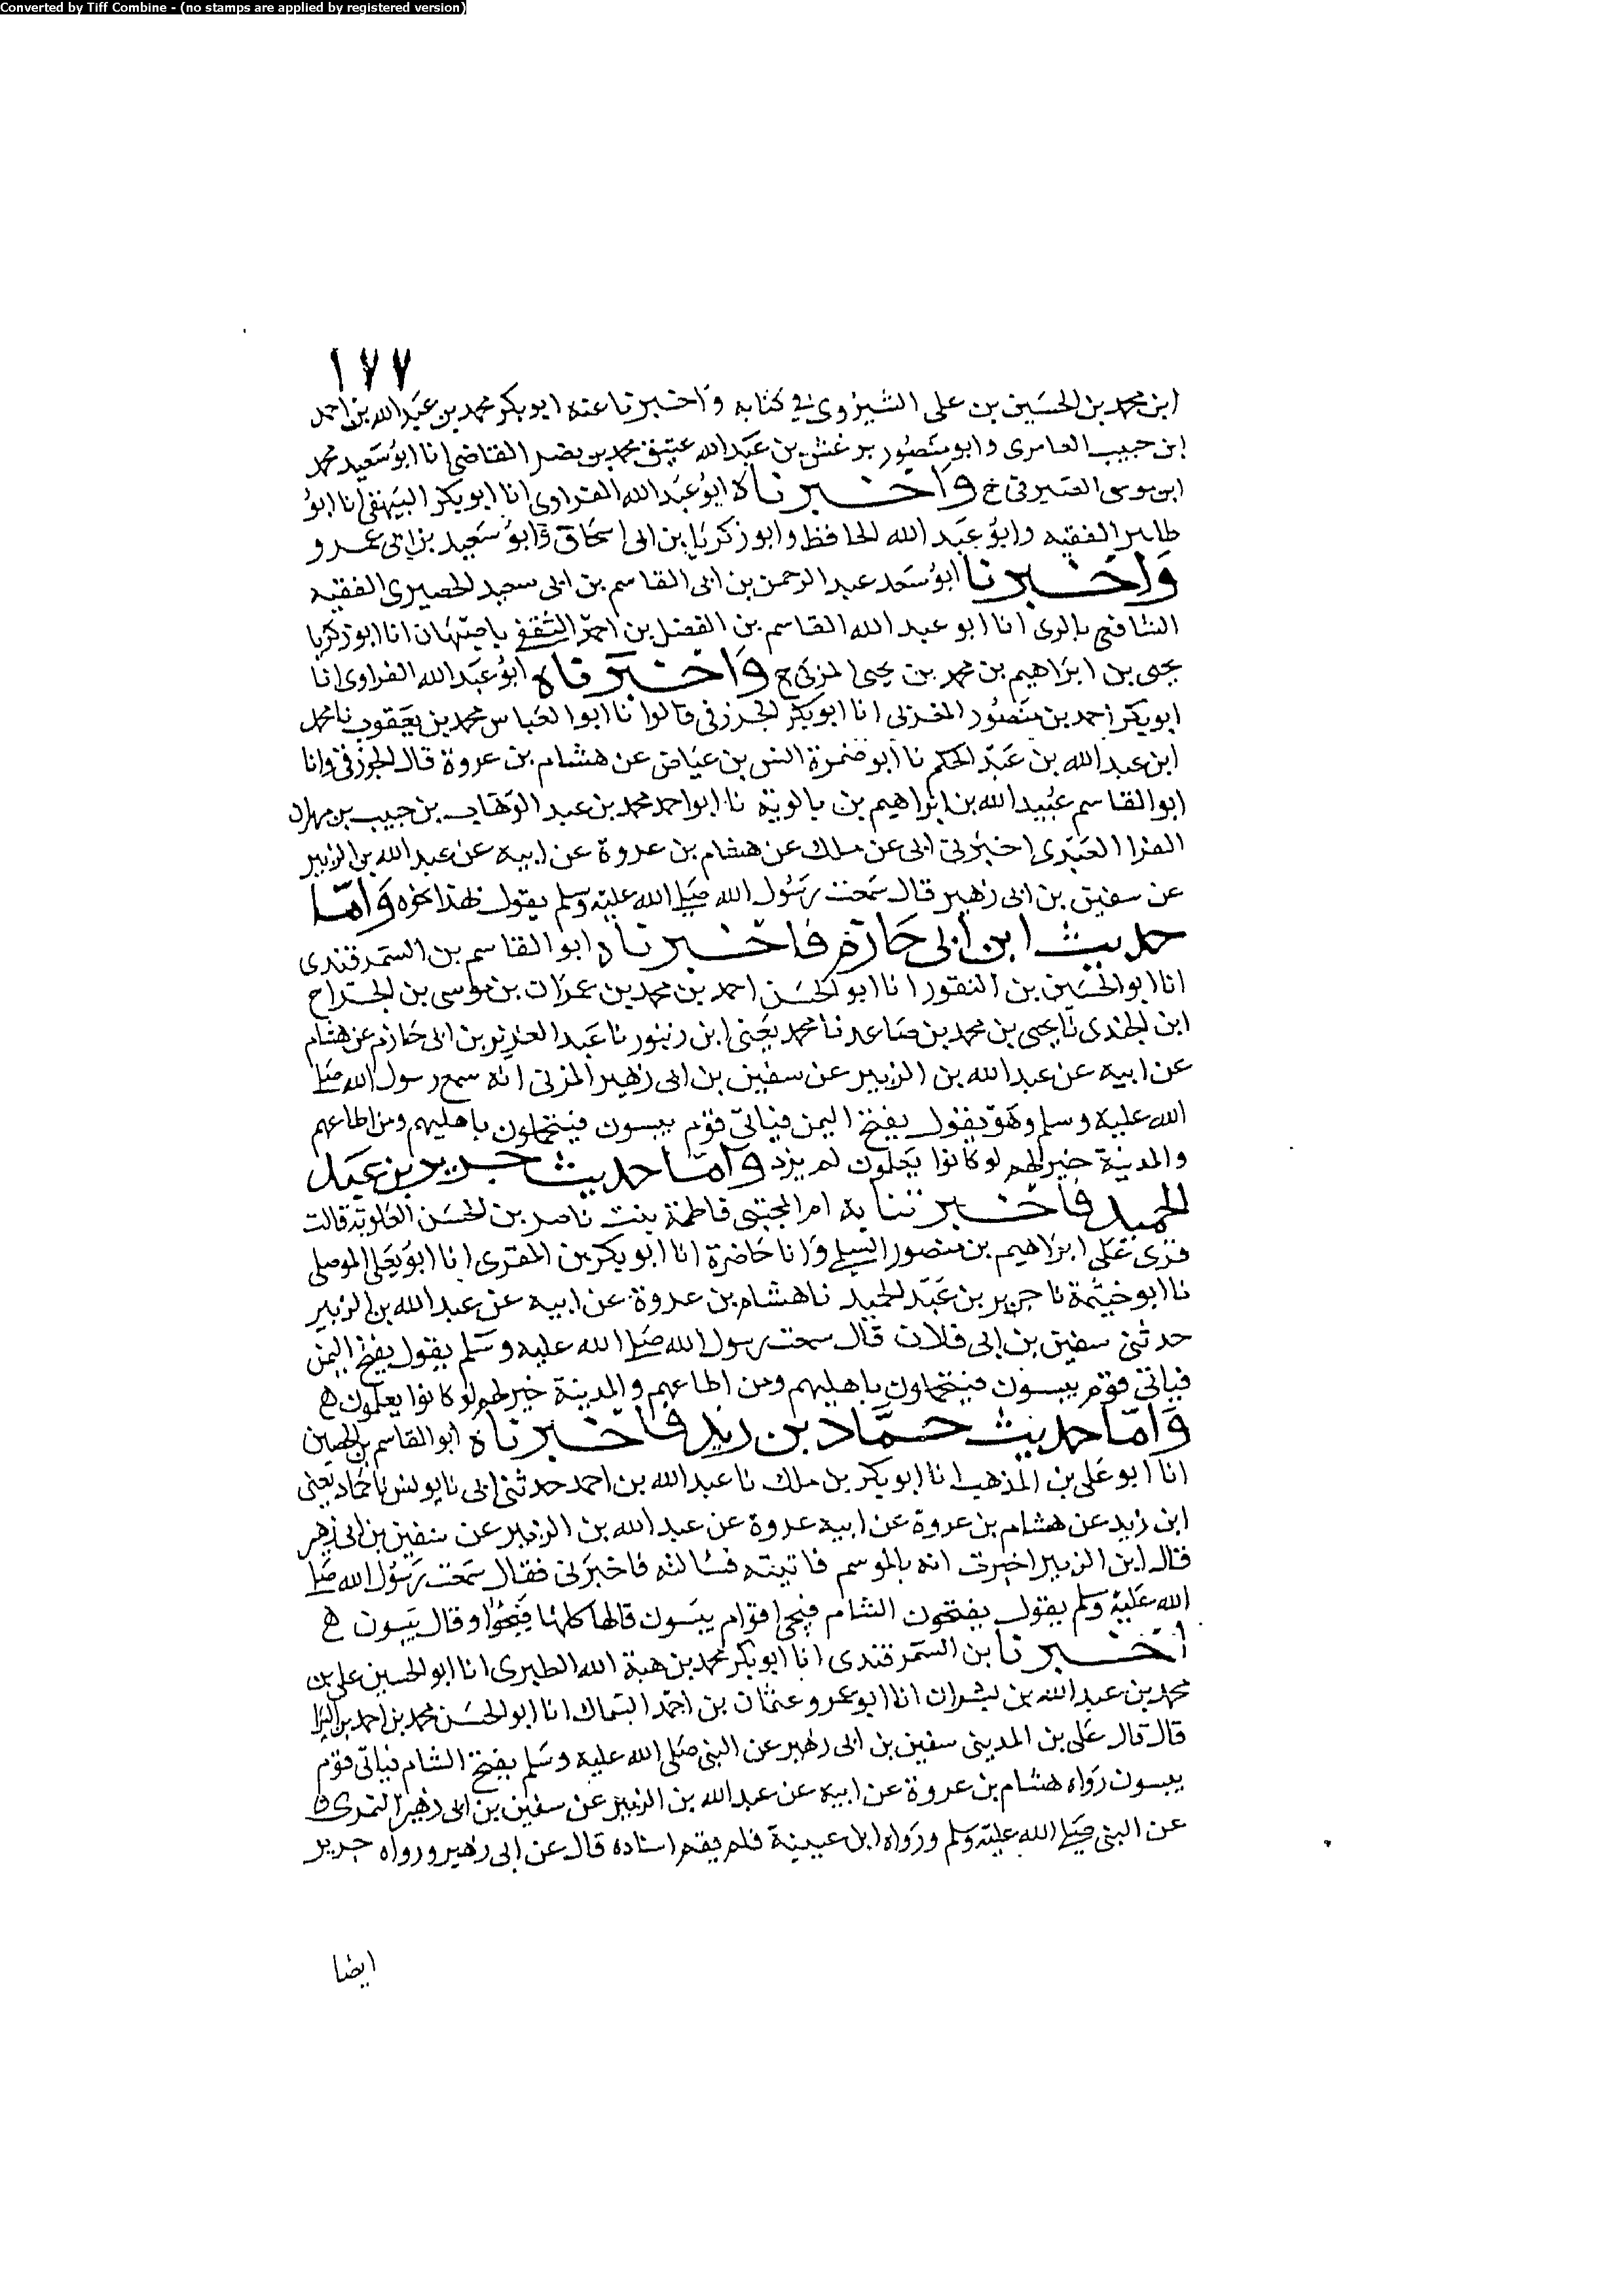 Converted by Tiff Combine - (no stamps are applied by registered version)
١٧٧
ابن محمد بن الحسين بن على الشيزوى فى كتابه واخبرنا عنه ابو بكر محمد بن عبد الله بن احمد
ابن حبيب العامرى وابو منصور بن عبد الله عتيق محمد بن نصر القاضى انا ابو سعيد محمد
ابن موسى الصيرفى ح واخبرناه ابو عبد الله الفراوى انا ابو بكر البيهقى انا ابو
طاهر الفقيه وابو عبد الله الحافظ وابو زكريا بن ابى اسحاق وابو سعيد بن ابى عمرو
واخبرنا ابو سعد عبد الرحمن بن ابى القاسم بن ابى سعيد الحصيرى الفقيه
الشافعى بالرى انا ابو عبد الله القاسم بن الفضل بن احمد الثقفى باصبهان انا ابو زكريا
يحيى بن ابراهيم بن محمد بن يحيى المزكى ح واخبرناه ابو عبد الله الفراوى انا
ابو بكر احمد بن منصور المغربى انا ابو بكر الجوزقى قالوا نا ابو العباس محمد بن يعقوب نا محمد
ابن عبد الله بن عبد الحكم نا ابو ضمرة انس بن عياض عن هشام بن عروة قال الجوزقى وانا
ابو القاسم عبيد الله بن ابراهيم بن بالوية نا ابو احمد محمد بن عبد الوهاب بن حبيب بن مهران
الفرا العبدى اخبرنى ابى عن ملك عن هشام بن عروة عن ابيه عن عبد الله بن الزبير
عن سفين بن ابى زهير قال سمعت رسول الله صلى الله عليه وسلم يقول فهذا نحوه واما
حديث ابن ابى حازم فاخبرناه ابو القاسم بن السمرقندى
انا ابو الحسين بن النقور انا ابو الحسن احمد بن محمد بن عمران بن موسى بن الجراح
ابن الجندى نا يحيى بن محمد بن صاعد نا محمد يعنى ابن زنبور نا عبد العزيز بن ابى حازم عن هشام
عن ابيه عن عبد الله بن الزبير عن سفين بن ابى زهير المزنى انه سمع رسول الله صلى
الله عليه وسلم وهو يقول يفتح اليمن فياتى قوم يبسون فيتحملون باهليهم ومن اطاعهم
والمدينة خير لهم لو كانوا يعلمون لم يزد واما حديث جرير بن عبد
الحميد فاخبرتنا به ام المجتبى فاطمة بنت ناصر بن الحسن العلوية قالت
قرى على ابراهيم بن منصور السلمى وانا حاضرة انا ابو بكر بن المقرى انا ابو يعلى الموصلى
نا ابو خيثمة نا جرير بن عبد الحميد نا هشام بن عروة عن ابيه عن عبد الله بن الزبير
حدثنى سفين بن ابى فلان قال سمعت رسول الله صلى الله عليه وسلم يقول يفتح اليمن
فياتى قوم يبسون فيتحملون باهليهم ومن اطاعهم والمدينة خير لهم لو كانوا يعلمون ه
واما حديث حماد بن زيد فاخبرناه ابو القاسم بن الحصين
انا ابو على بن المذهب انا ابو بكر بن ملك نا عبد الله بن احمد حدثنى ابى نا يونس نا حماد يعنى
ابن زيد عن هشام بن عروة عن ابيه عروة عن عبد الله بن الزبير عن سفين بن ابى زهير
قال ابن الزبير اخبرت انه بالموسم فاتيته فسالته فاخبرنى فقال سمعت رسول الله صلى
الله عليه وسلم يقول يفتحون الشام فيجى اقوام يبسون قالها كلها فتحوا وقال يبسون ه
اخبرنا بن السمرقندى انا ابو بكر محمد بن هبة الله الطبرى انا ابو الحسين على بن
محمد بن عبد الله بن بشران انا ابو عمرو عثمان بن احمد السماك انا ابو الحسن محمد بن احمد بن البرا
قال قال على بن المدينى سفين بن ابى زهير عن النبى صلى الله عليه وسلم يفتح الشام فياتى قوم
يبسون رواه هشام بن عروة عن ابيه عن عبد الله بن الزبير عن سفين بن ابى زهير النمرى
عن النبى صلى الله عليه وسلم ورواه ابن عيينة فلم يقم اسناده قال عن ابى زهير ورواه جرير
ايضا